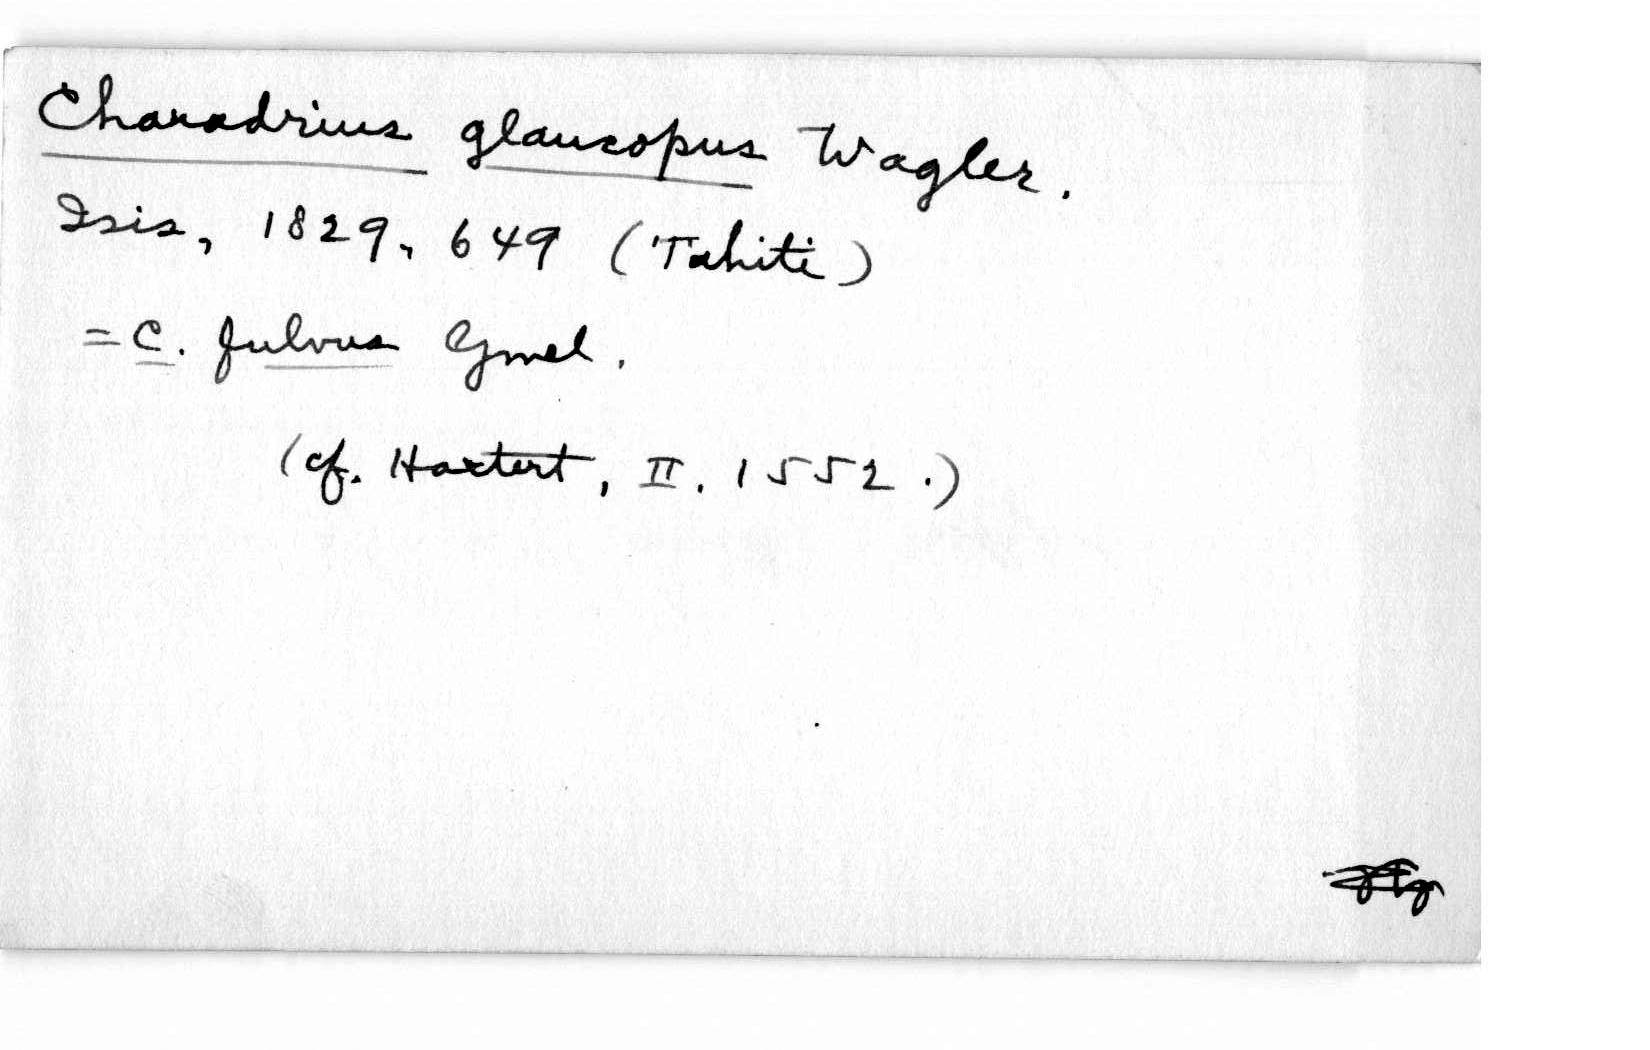 Charadrius glaucopus Wagler.
Isis, 1829, 649 (Tahiti)
= C. fulvus Gmel.
(cf. Hartert, II. 1552.)